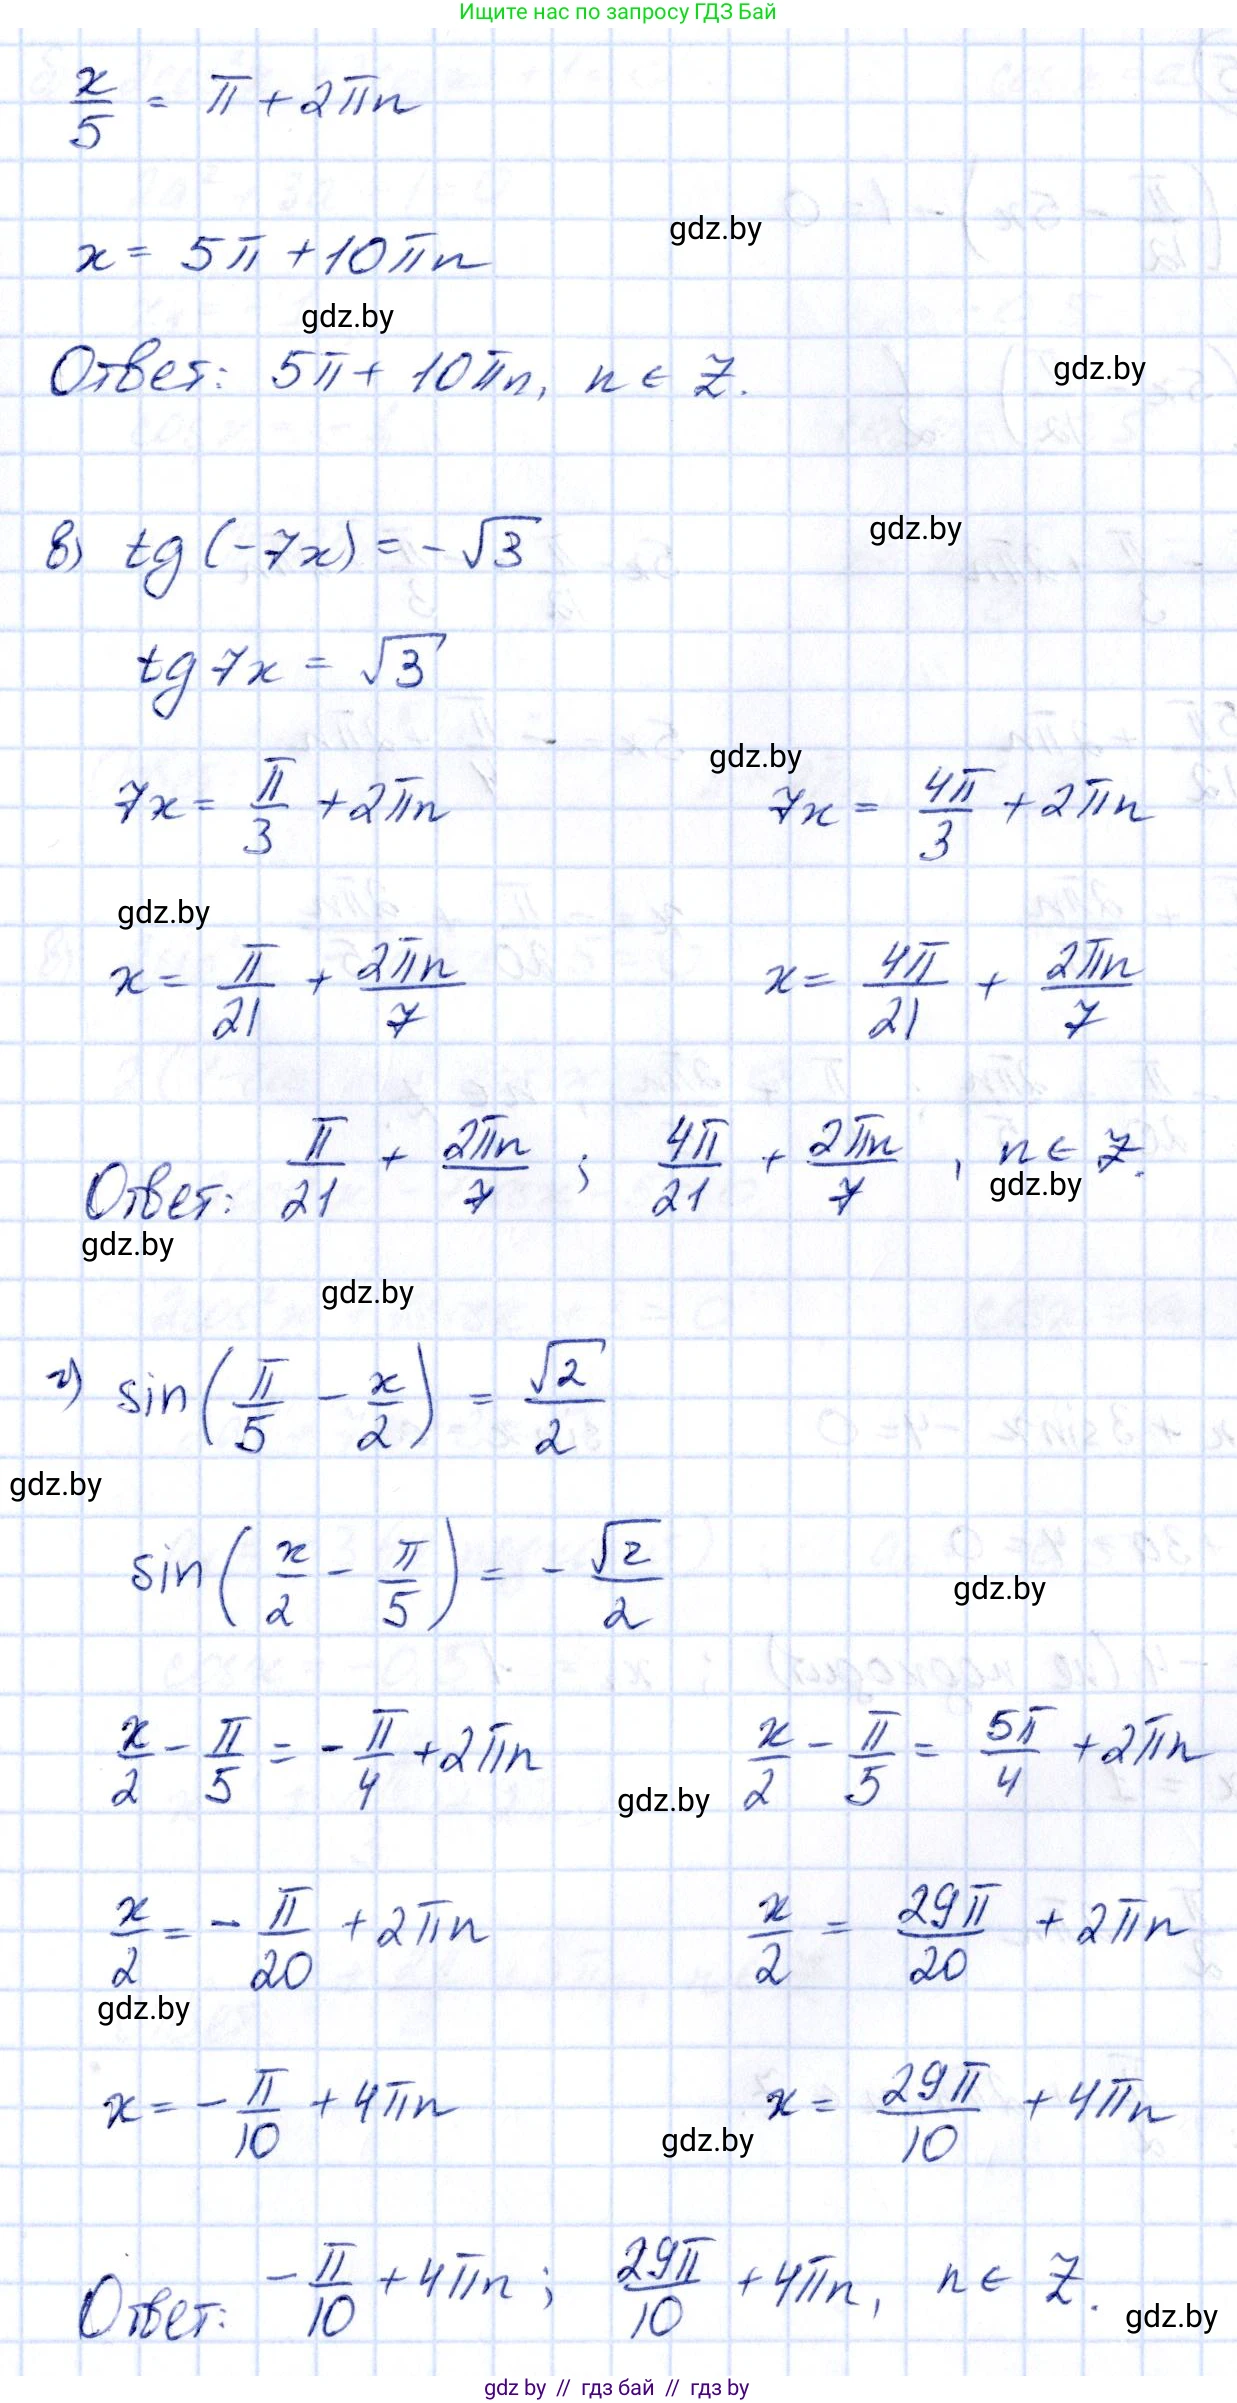 Ищите нас по запросу ГДЗ Бай
x/5 = π + 2πn
x = 5π + 10πn
gdz.by
gdz.by
Ответ: 5π + 10πn, n ∈ Z.
gdz.by
в) tg(-7x) = -√3
gdz.by
tg 7x = √3
gdz.by
7x = π/3 + 2πn 7x = 4π/3 + 2πn
gdz.by
x = π/21 + 2πn/7 x = 4π/21 + 2πn/7
Ответ: π/21 + 2πn/7 ; 4π/21 + 2πn/7 , n ∈ Z.
gdz.by
gdz.by
gdz.by
г) sin(π/5 - x/2) = √2/2
gdz.by
sin(x/2 - π/5) = -√2/2
gdz.by
x/2 - π/5 = -π/4 + 2πn x/2 - π/5 = 5π/4 + 2πn
gdz.by
x/2 = -π/20 + 2πn x/2 = 29π/20 + 2πn
gdz.by
x = -π/10 + 4πn x = 29π/10 + 4πn
gdz.by
Ответ: -π/10 + 4πn ; 29π/10 + 4πn, n ∈ Z.
gdz.by
gdz by // гдз бай // гдз by